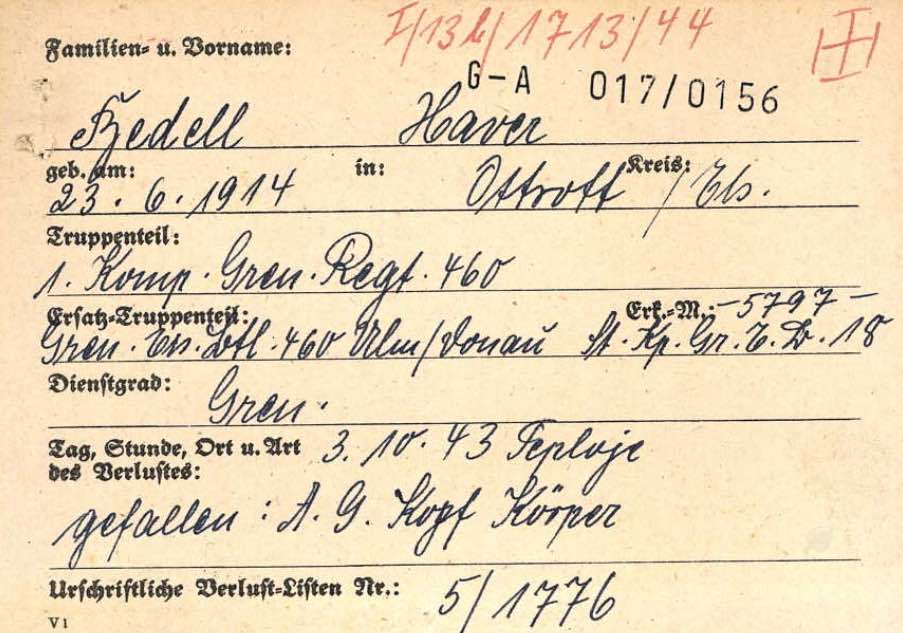 I/13b/1713/44
Familien- u. Vorname:
G-A 017/0156
Haver
geb. am: in: Kreis:
23. 6. 1914 Ottrott / Els.
Truppenteil:
1. Komp. Gren. Regt. 460
Ersatz-Truppenteil: Erk.-M.: -5797-
Gren. Ers. Btl. 460 Ulm/Donau St. Kp. Gr. E. B. 18
Dienstgrad:
Gren.
Tag, Stunde, Ort u. Art 3. 10. 43 Teploje
des Verlustes:
gefallen: A. G. Kopf Körper
Urschriftliche Verlust-Listen Nr.: 5/1776
V1